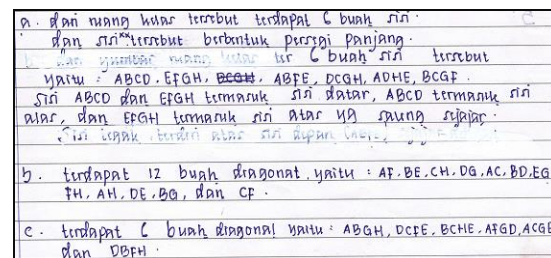 a. dari ruang kelas tersebut terdapat 6 buah sisi
dan sisi" tersebut berbentuk persegi panjang.
b. dari gambar ruang kelas ter 6 buah sisi tersebut
yaitu : ABCD, EFGH, BCGH, ABFE, DCGH, ADHE, BCGF.
sisi ABCD dan EFGH termasuk sisi datar, ABCD termasuk sisi
alas, dan EFGH termasuk sisi atas yg saling sejajar.
Sisi tegak terdiri atas sisi depan
b. terdapat 12 buah diagonal yaitu : AF, BE, CH, DG, AC, BD, EG
FH, AH, DE, BG, dan CF.
c. terdapat 6 buah diagonal yaitu : ABGH, DCFE, BCHE, AFGD, ACGE
dan DBFH.